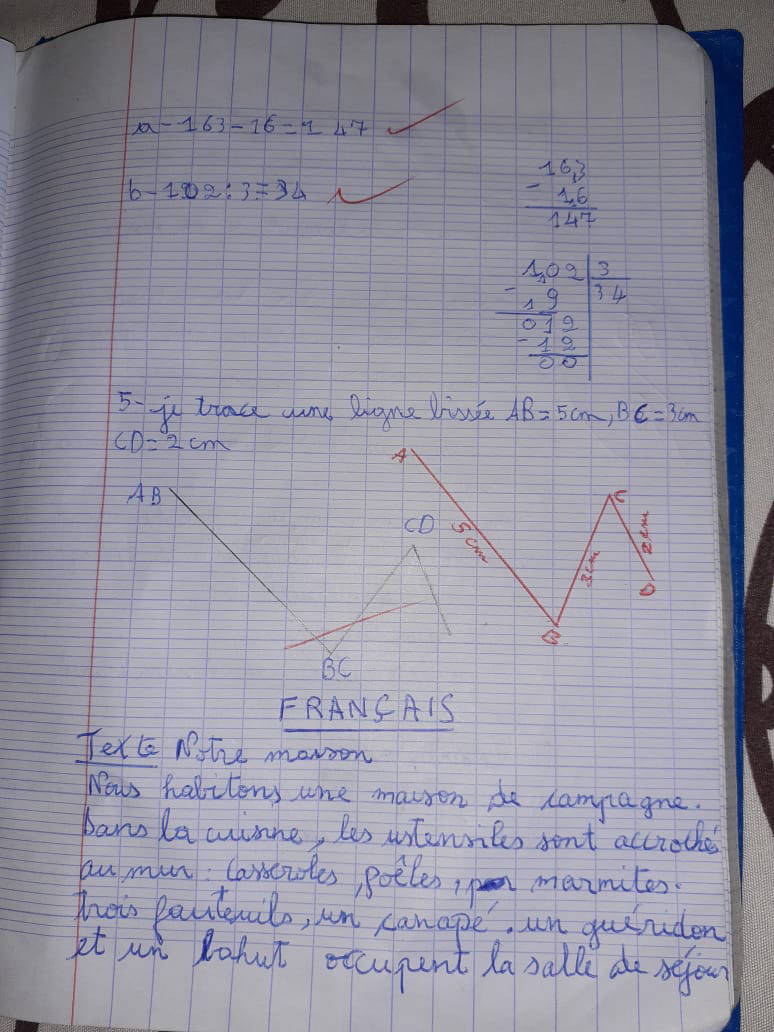 a-163-16=147
b-102:3=34
163
- 16
147
102 3
- 9 34
012
-12
00
5- je trace une ligne brisée AB=5cm, BC=3cm
CD=2cm
AB
BC
CD
A
5cm
B
3cm
C
2cm
D
FRANÇAIS
Texte Notre maison
Nous habitons une maison de campagne.
Dans la cuisine, les ustensiles sont accrochés
au mur : casseroles, poêles, marmites.
trois fauteuils, un canapé, un guéridon
et un bahut occupent la salle de séjour